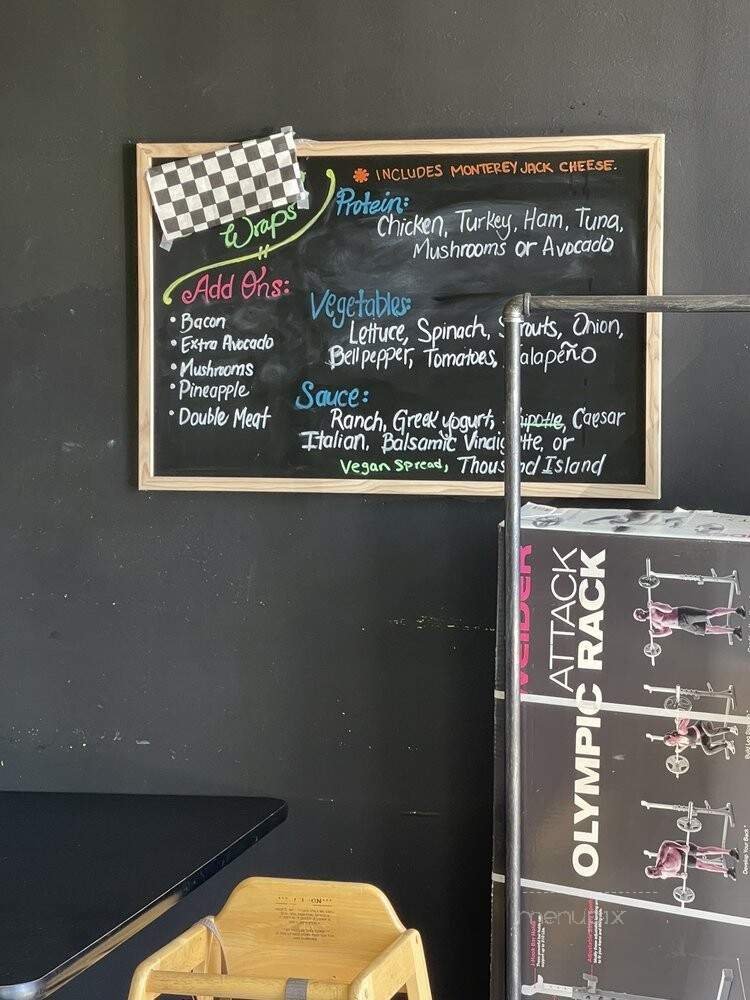 * INCLUDES MONTEREY JACK CHEESE.
Wraps
Protein:
Chicken, Turkey, Ham, Tuna,
Mushrooms or Avocado
Add On's:
• Bacon
• Extra Avocado
• Mushrooms
• Pineapple
• Double Meat
Vegetables:
Lettuce, Spinach, S routs, Onion,
Bell pepper, Tomatoes, alapeño
Sauce:
Ranch, Greek yogurt, ipotle, Caesar
Italian, Balsamic Vinaig tte, or
Vegan Spread, Thous nd Island
WEIDER
ATTACK
OLYMPIC RACK
Develop Your Back*
menupix